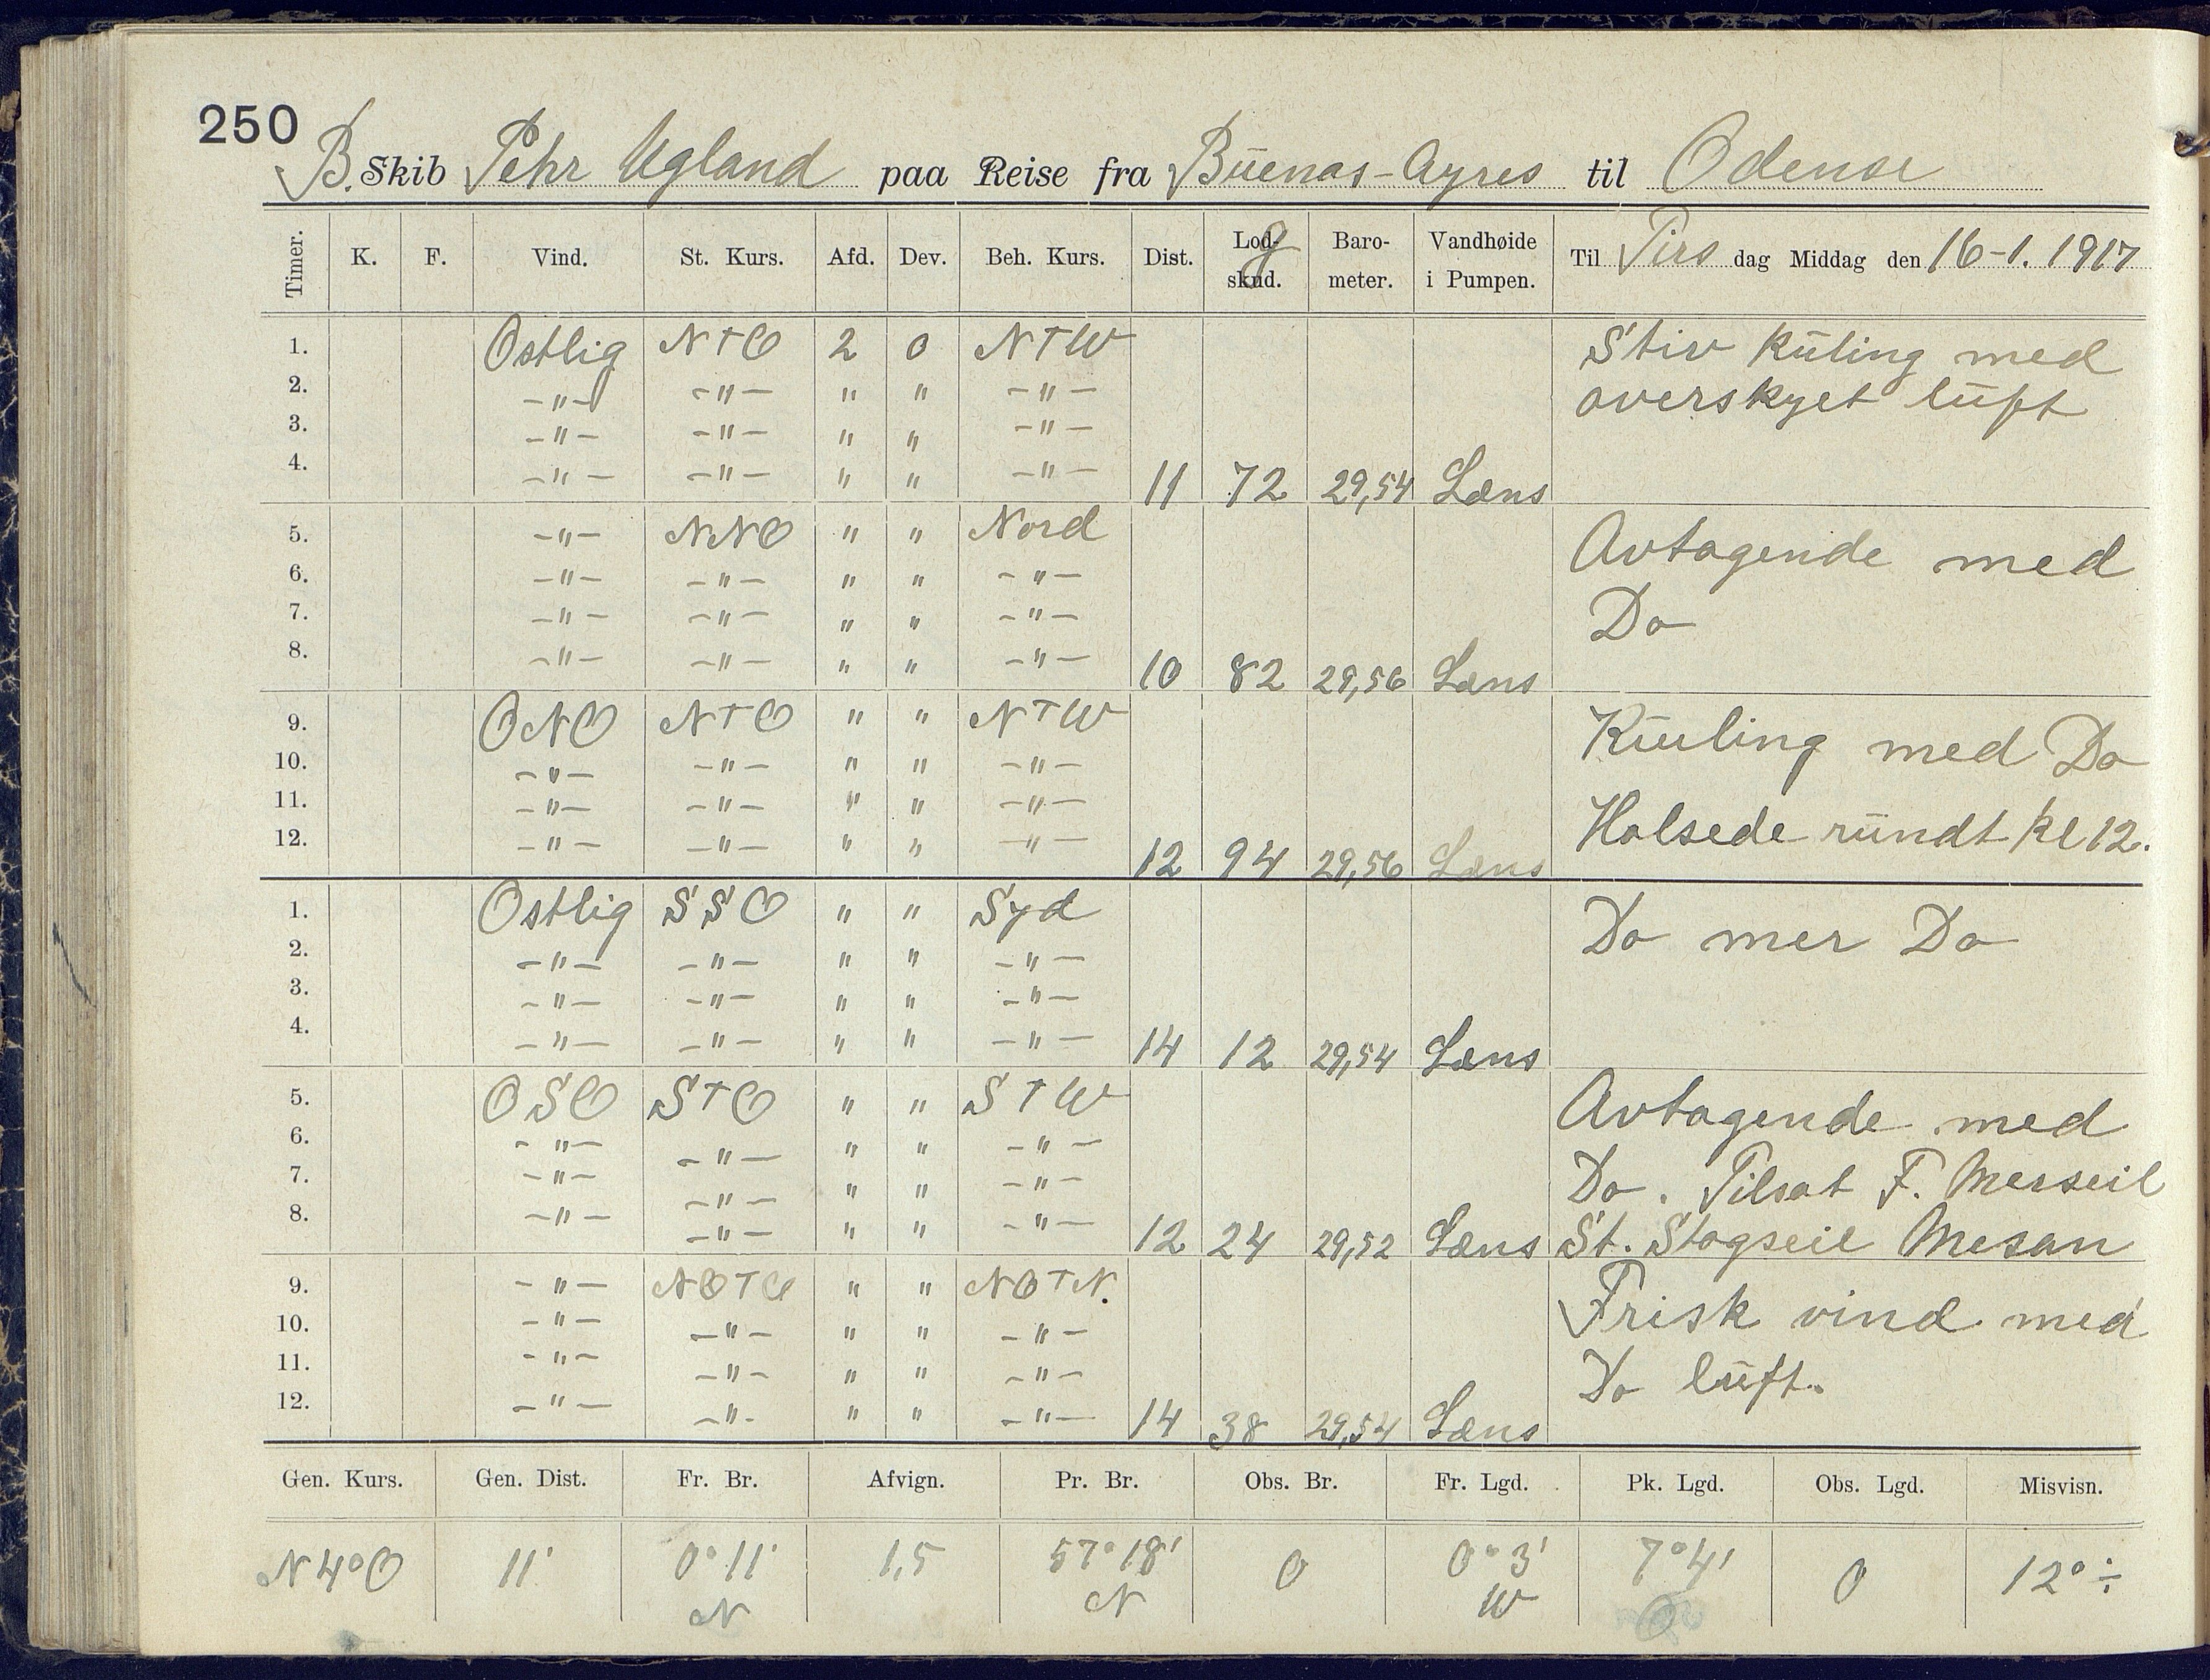 250
B. Skib Pehr Ugland paa Reise fra Buenas-Ayres til Odense
Timer. K. F. Vind. St. Kurs. Afd. Dev. Beh. Kurs. Dist. Logskud. Barometer. Vandhøide i Pumpen. Til Tirs dag Middag den 16-1. 1917
1. Ostlig NTO 2 0 NTW Stiv Kūling med
2. -"- -"- " " -"- overskyet lūft
3. -"- -"- " " -"-
4. -"- -"- " " -"- 11 72 29,54 Læns
5. -"- NNO " " Nord Avtagende med
6. -"- -"- " " -"-
7. -"- -"- " " -"- Do
8. -"- -"- " " -"- 10 82 29,56 Læns
9. ONO NTO " " NTW Kūling med Do
10. -"- -"- " " -"-
11. -"- -"- " " -"- Halsede rūndt kl 12.
12. -"- -"- " " -"- 12 94 29,56 Læns
1. Ostlig SSO " " Syd Do mer Do
2. -"- -"- " " -"-
3. -"- -"- " " -"-
4. -"- -"- " " -"- 14 12 29,54 Læns
5. OSO STO " " STW Avtagende med
6. -"- -"- " " -"-
7. -"- -"- " " -"- Do. Tilsat F. Merseil
8. -"- -"- " " -"- 12 24 29,52 Læns St. Stagseil Mesan
9. -"- NOTO " " NOTN. Frisk vind med
10. -"- -"- " " -"-
11. -"- -"- " " -"- Do lūft.
12. -"- -"- " " -"- 14 38 29,54 Læns
Gen. Kurs. Gen. Dist. Fr. Br. Afvign. Pr. Br. Obs. Br. Fr. Lgd. Pk. Lgd. Obs. Lgd. Misvisn.
N4°O 11' 0°11' N 1,5 57°18' N 0 0°3' W 7°4' O 0 12° ÷